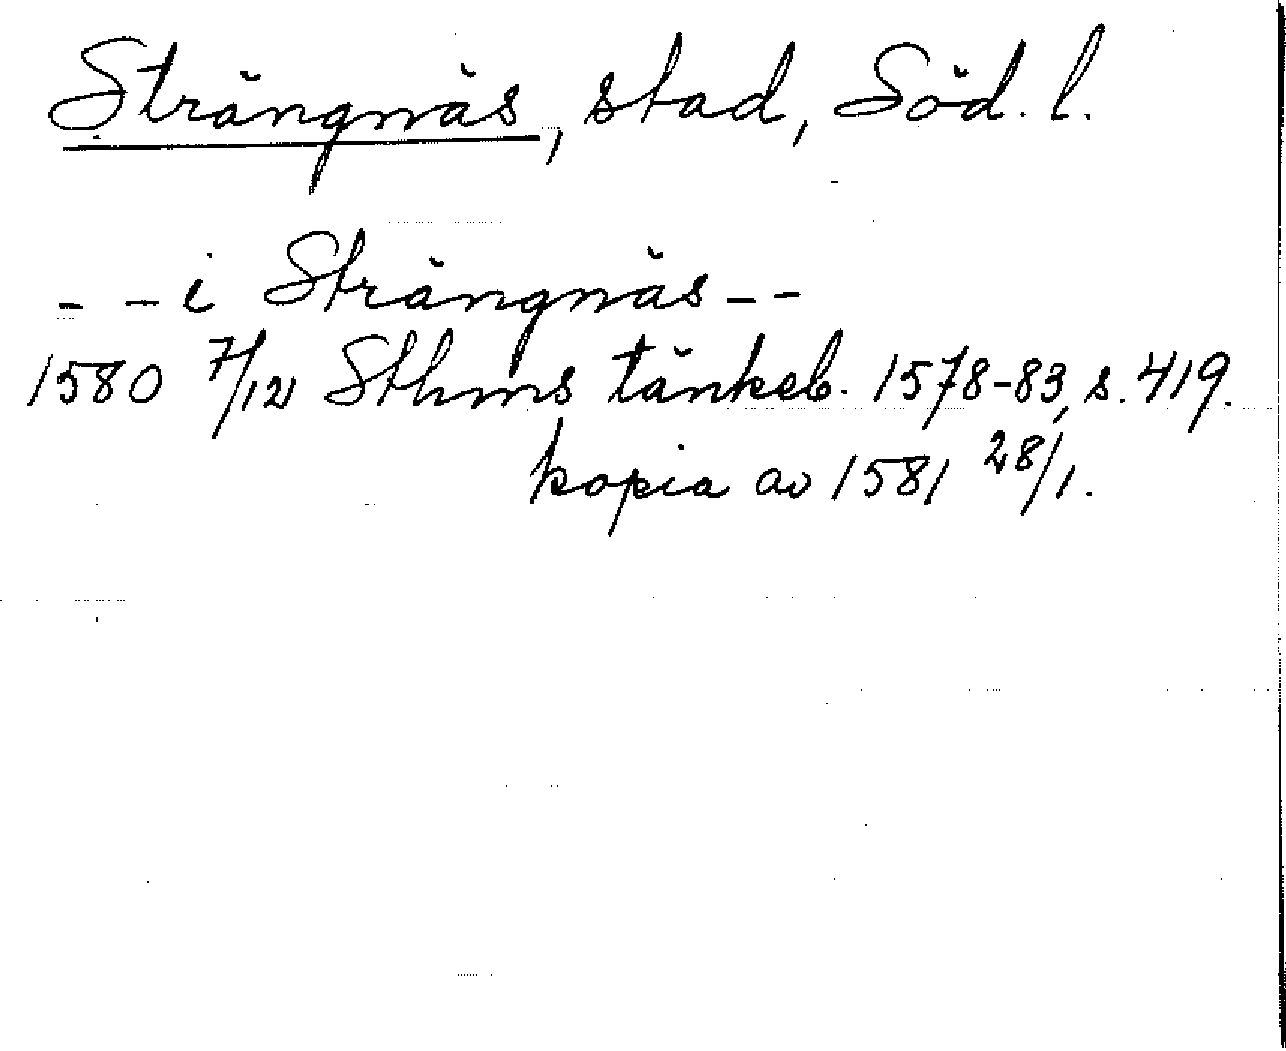 Strängnäs, stad, Söd. l.
- - i Strängnäs - -
1580 7/12 Sthms tänkeb. 1578-83, s. 419.
kopia av 1581 28/1.